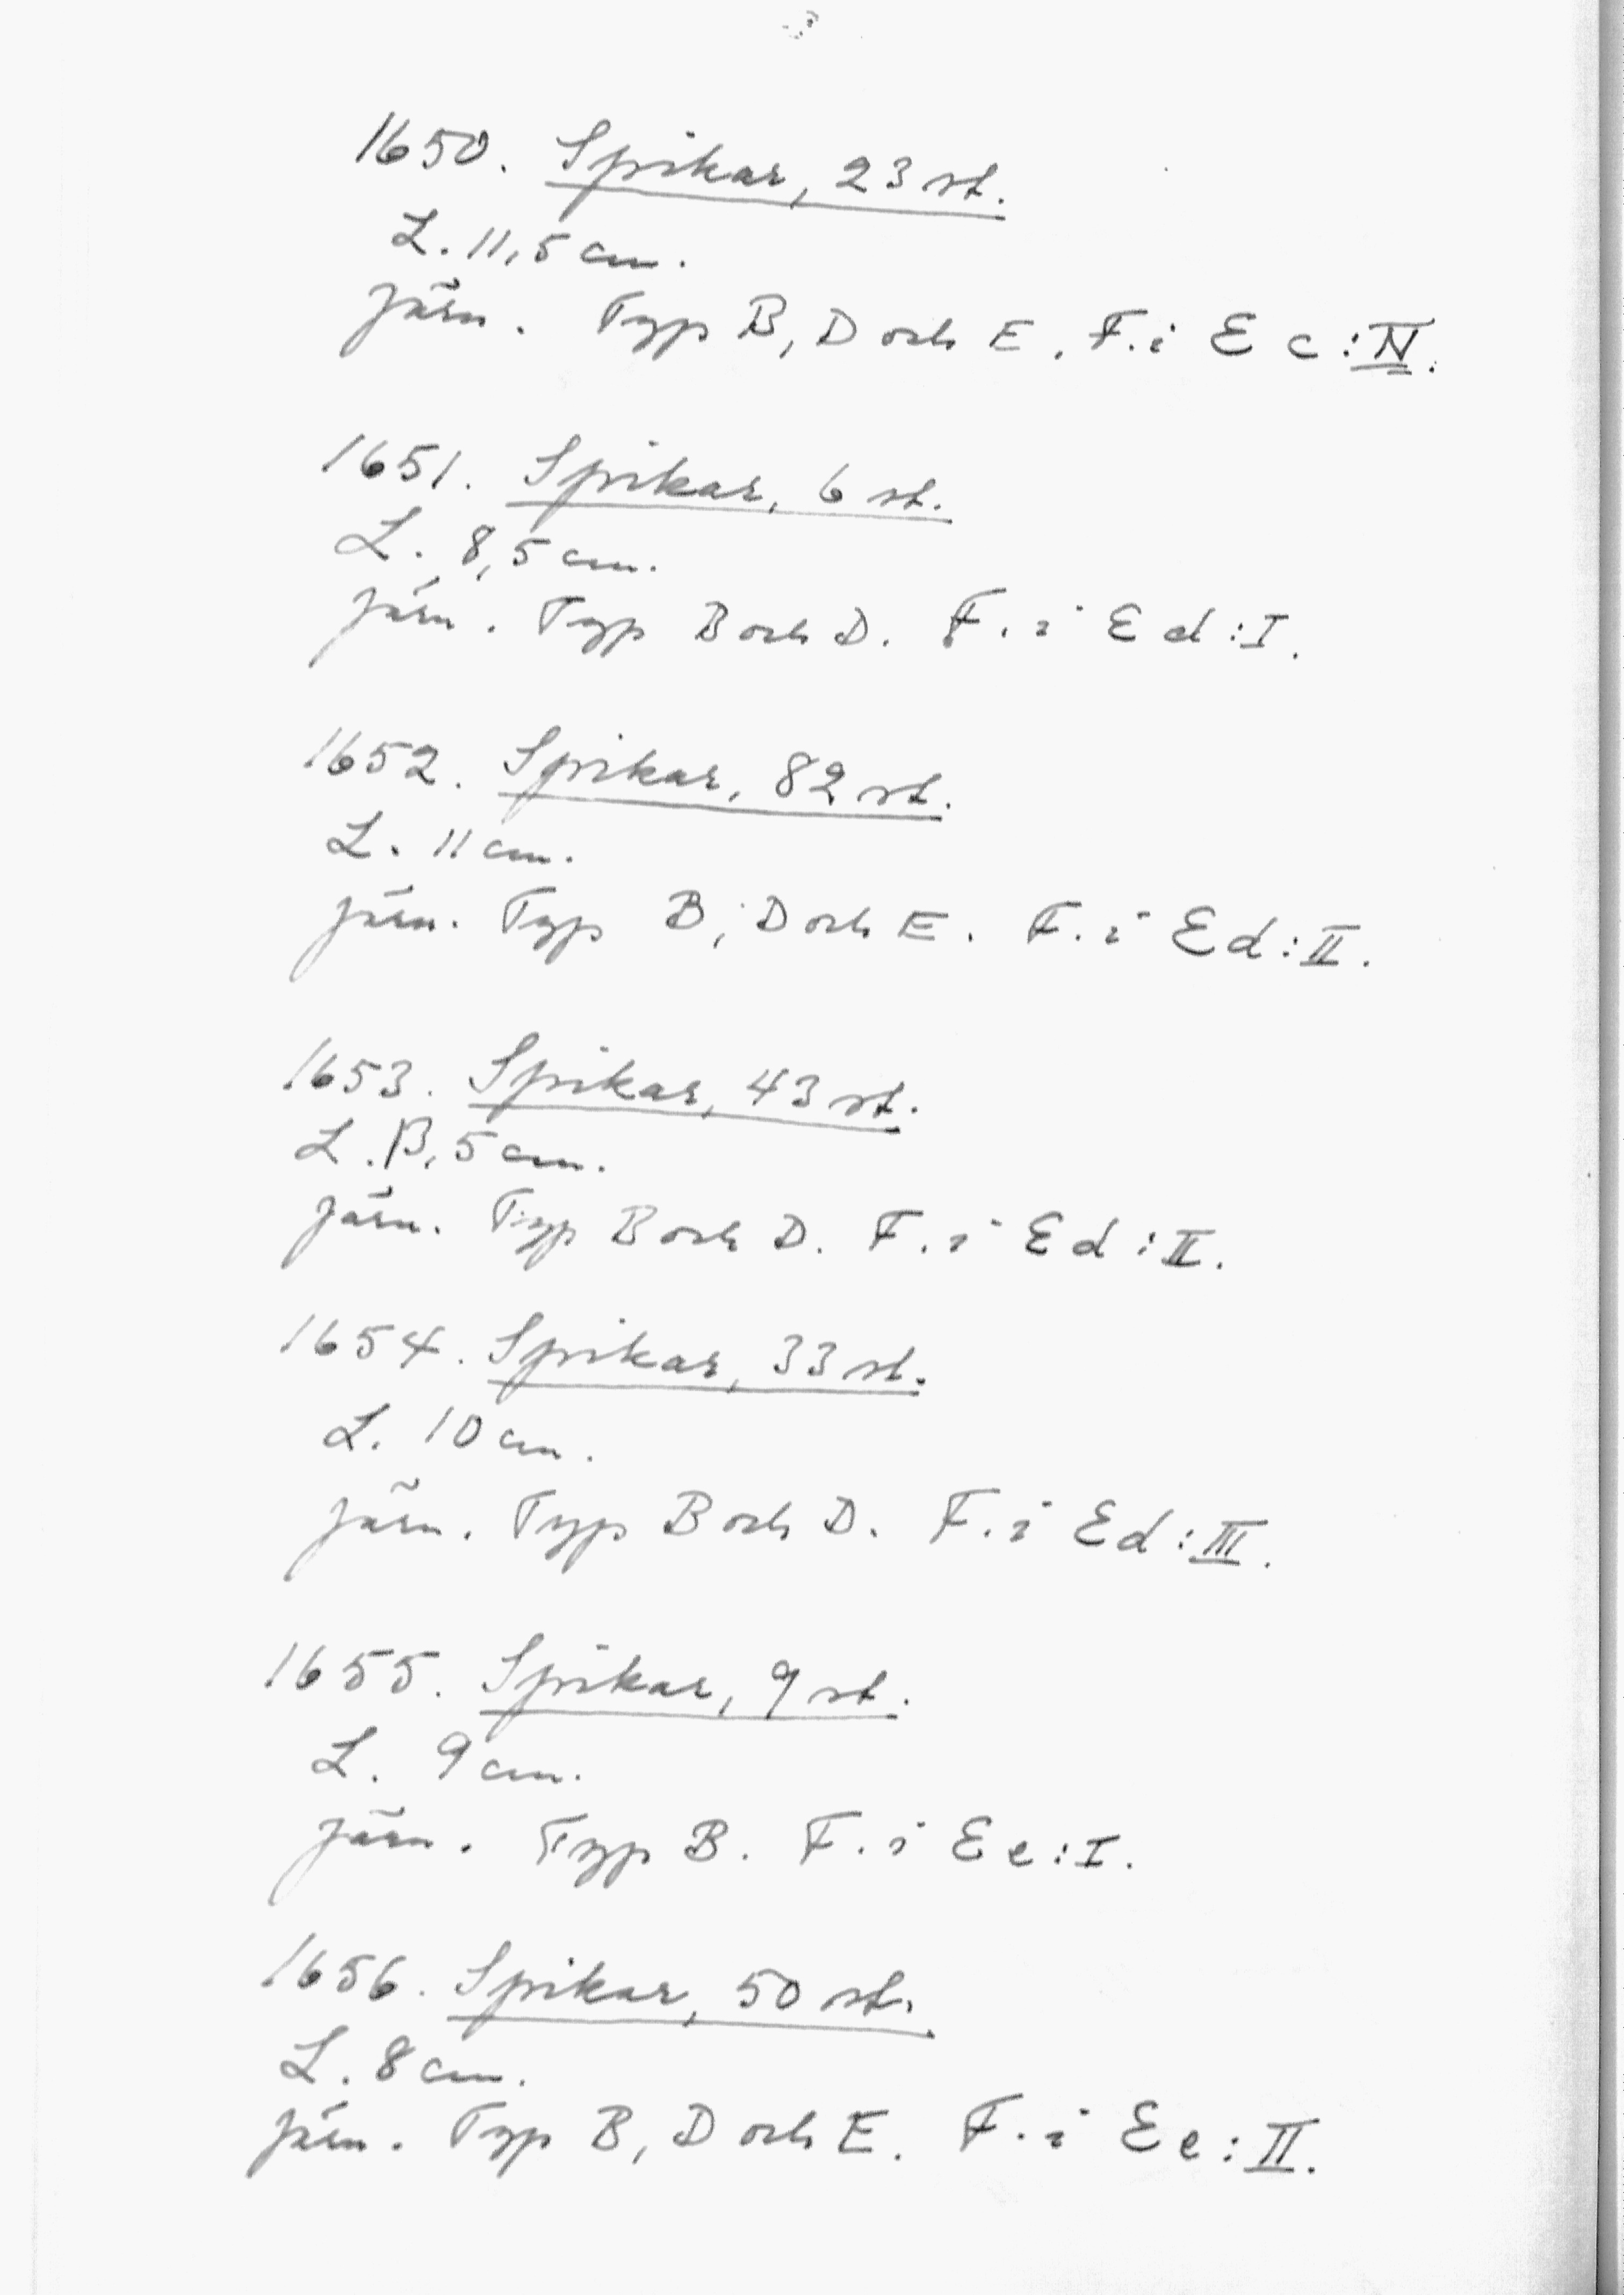 1650. Spikar, 23 st.
L. 11,5 cm.
Järn. Typ B, D och E. F. i E c: IV.
1651. Spikar, 6 st.
L. 8,5 cm.
Järn. Typ B och D. F. i E d: I.
1652. Spikar, 82 st.
L. 11 cm.
Järn. Typ B, D och E. F. i E d: II.
1653. Spikar, 43 st.
L. 13,5 cm.
Järn. Typ B och D. F. i E d: II.
1654. Spikar, 33 st.
L. 10 cm.
Järn. Typ B och D. F. i E d: III.
1655. Spikar, 9 st.
L. 9 cm.
Järn. Typ B. F. i E e: I.
1656. Spikar, 50 st.
L. 8 cm.
Järn. Typ B, D och E. F. i E e: II.